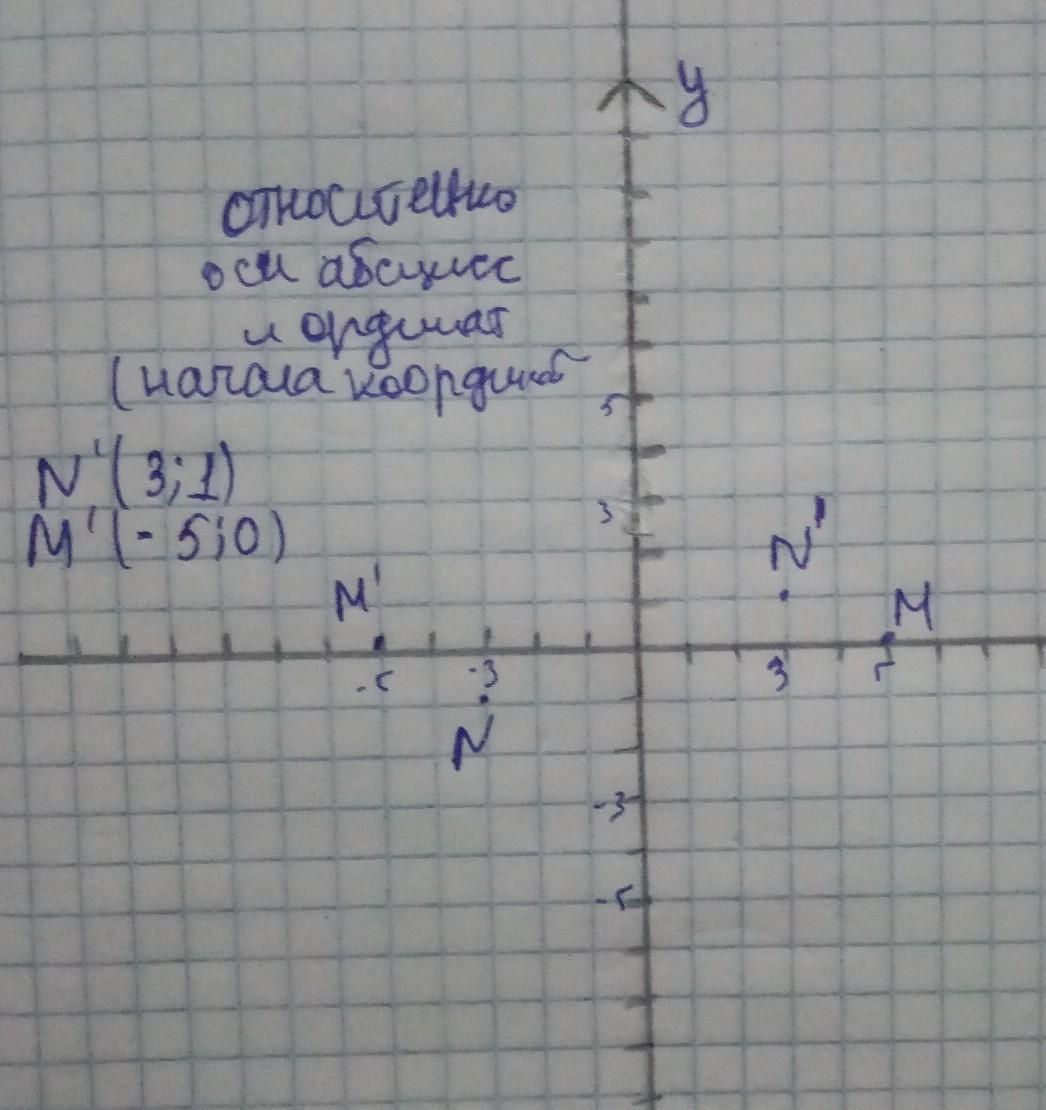 y
относительно
оси абсцисс
и ординат
(начала координат
5
N'(3;1)
3
M'(-5;0)
N'
M'
M
-5
-3
3
5
N
-3
-5